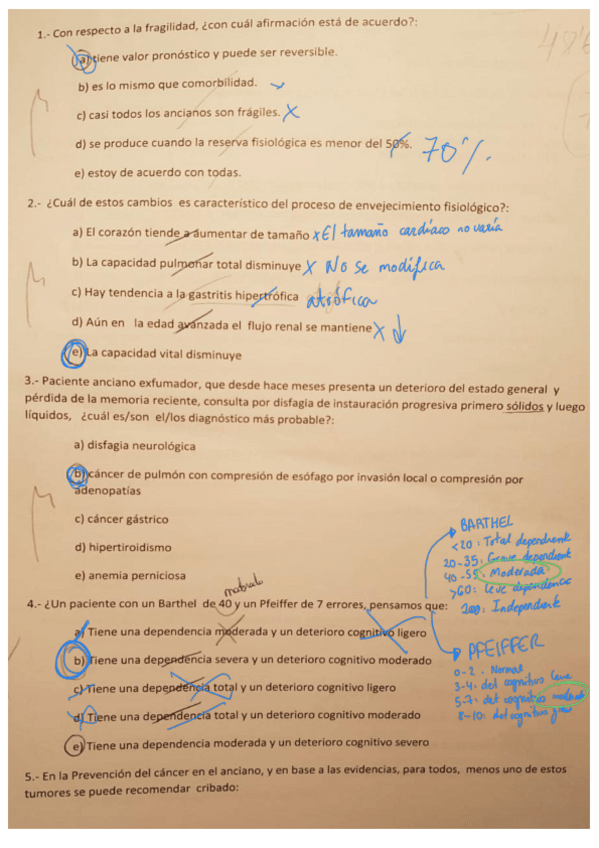 1.- Con respecto a la fragilidad, ¿con cuál afirmación está de acuerdo?:
a) tiene valor pronóstico y puede ser reversible.
b) es lo mismo que comorbilidad.
c) casi todos los ancianos son frágiles. X
d) se produce cuando la reserva fisiológica es menor del 50%. 70%.
e) estoy de acuerdo con todas.
2.- ¿Cuál de estos cambios es característico del proceso de envejecimiento fisiológico?:
a) El corazón tiende a aumentar de tamaño x El tamaño cardíaco no varía
b) La capacidad pulmonar total disminuye X No se modifica
c) Hay tendencia a la gastritis hipertrófica atrófica
d) Aún en la edad avanzada el flujo renal se mantiene X ↓
e) La capacidad vital disminuye
3.- Paciente anciano exfumador, que desde hace meses presenta un deterioro del estado general y
pérdida de la memoria reciente, consulta por disfagia de instauración progresiva primero sólidos y luego
líquidos, ¿cuál es/son el/los diagnóstico más probable?:
a) disfagia neurológica
b) cáncer de pulmón con compresión de esófago por invasión local o compresión por
adenopatías
c) cáncer gástrico
d) hipertiroidismo
e) anemia perniciosa
BARTHEL
<20: Total dependiente
20-35: Grave dependient
40-55: Moderada
>60: Leve dependencia
100: Independient
4.- ¿Un paciente con un Barthel de 40 y un Pfeiffer de 7 errores, pensamos que:
a) Tiene una dependencia moderada y un deterioro cognitivo ligero
b) Tiene una dependencia severa y un deterioro cognitivo moderado
c) Tiene una dependencia total y un deterioro cognitivo ligero
d) Tiene una dependencia total y un deterioro cognitivo moderado
e) Tiene una dependencia moderada y un deterioro cognitivo severo
PFEIFFER
0-2. Normal
3-4. det cognitivo leve
5-7. det cognitivo moderado
8-10: det cognitivo grave
5.- En la Prevención del cáncer en el anciano, y en base a las evidencias, para todos, menos uno de estos
tumores se puede recomendar cribado: